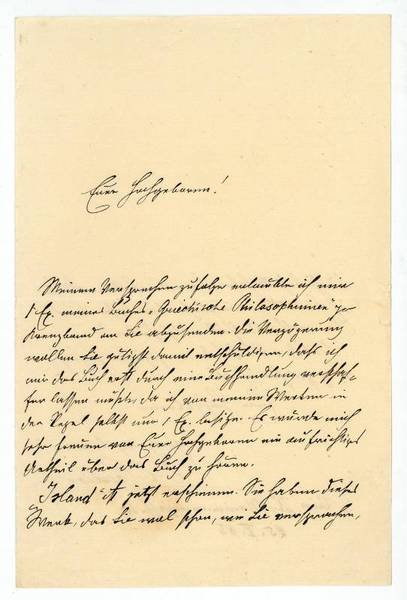 Euer Hochgeboren!
Meinem Versprechen zufolge erlaubte ich mir
1 Ex. meines Buches „Griechische Philosophinen" per
Kreuzband an Sie abzusenden. Die Verzögerung
wollen Sie gütigst damit entschuldigen, daß ich
mir das Buch erst durch eine Buchhandlung verschaf-
fen lassen mußte, da ich von meinen Werken in
der Regel selbst nur 1 Ex. besitze. Es würde mich
sehr freuen von Euer Hochgeboren ein aufrichtiges
Urtheil über das Buch zu hören.
„Island" ist jetzt erschienen. Sie haben dieses
Werk, das Sie wol schon, wie Sie versprachen,